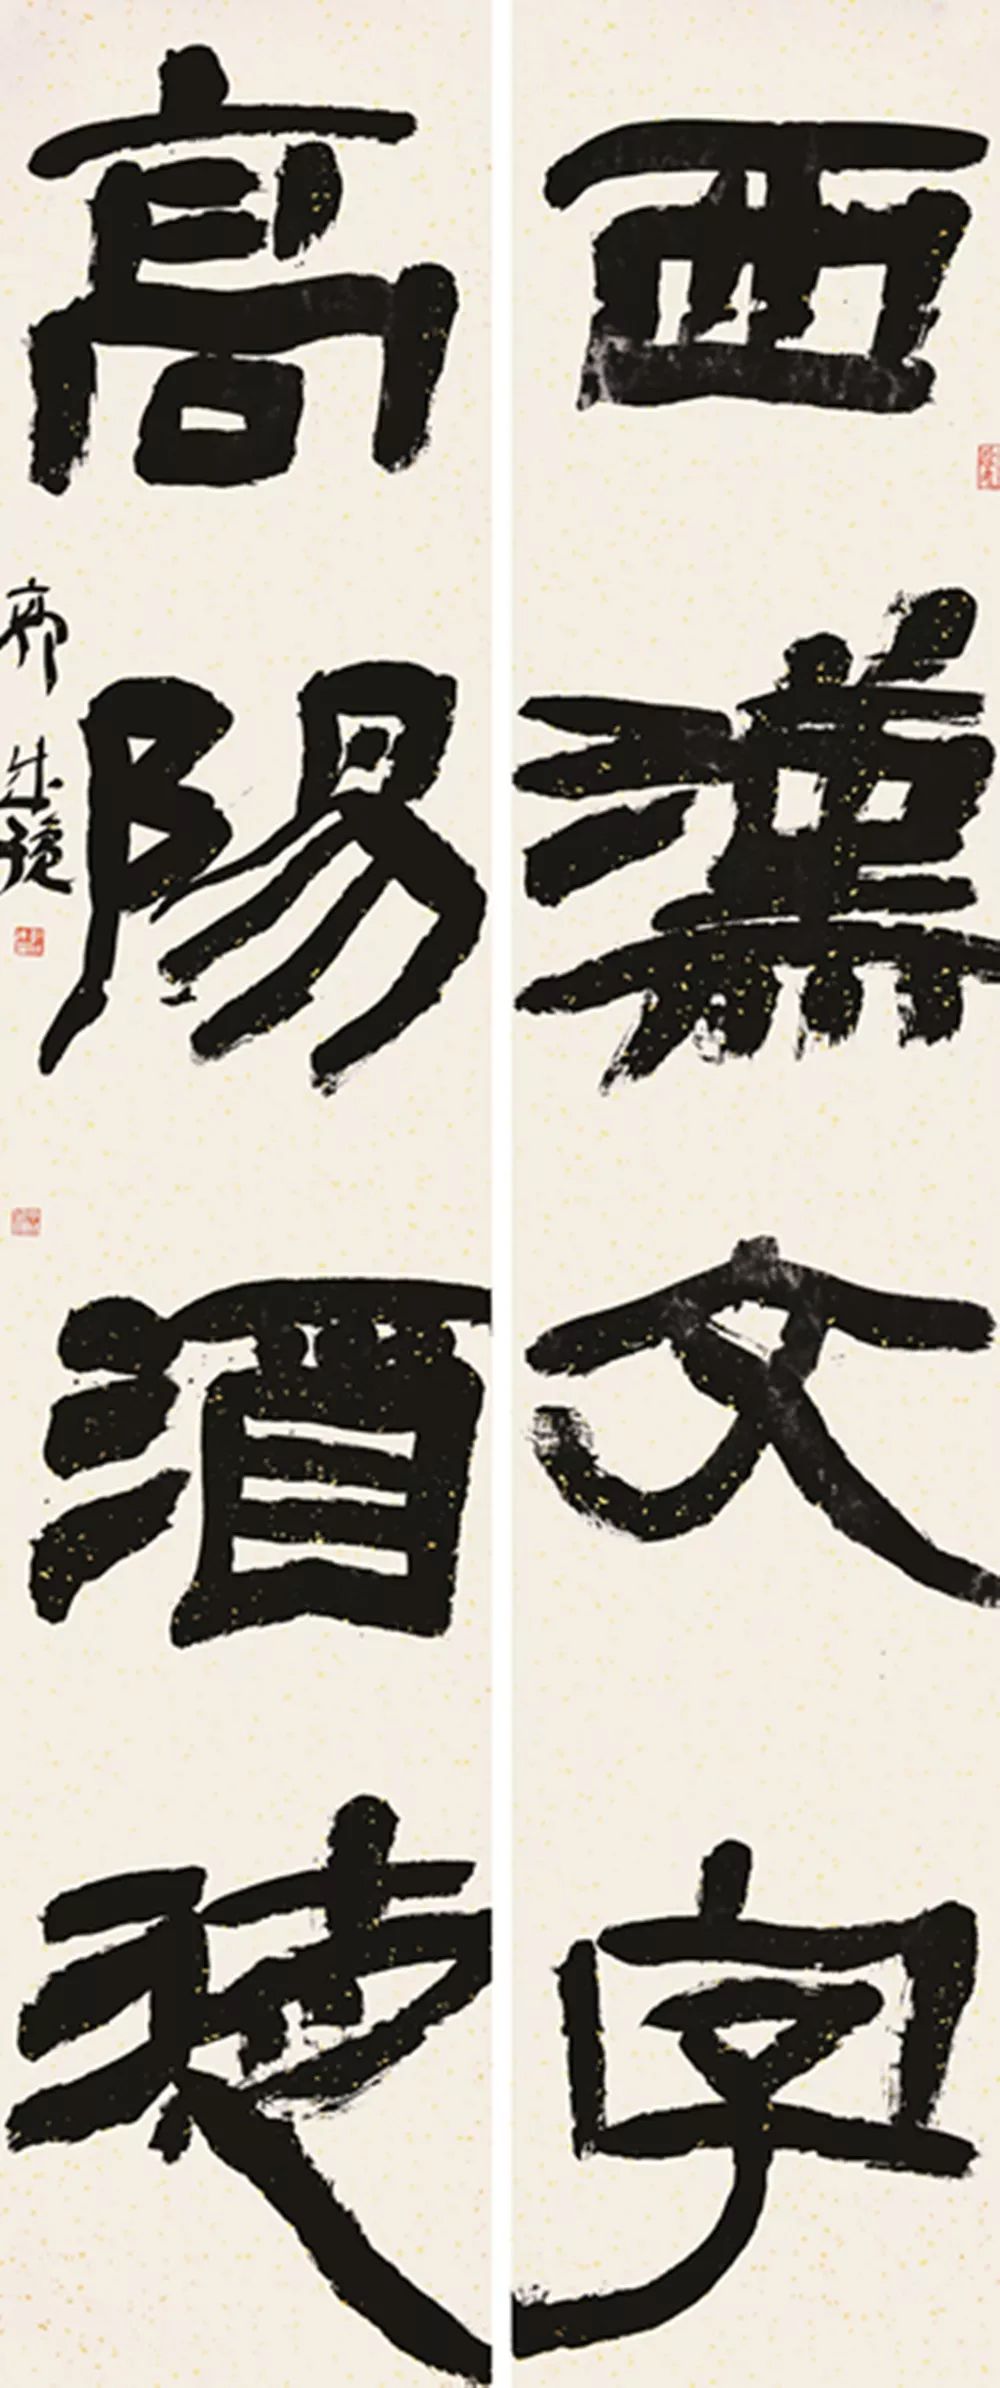 西漢文字
高陽酒徒